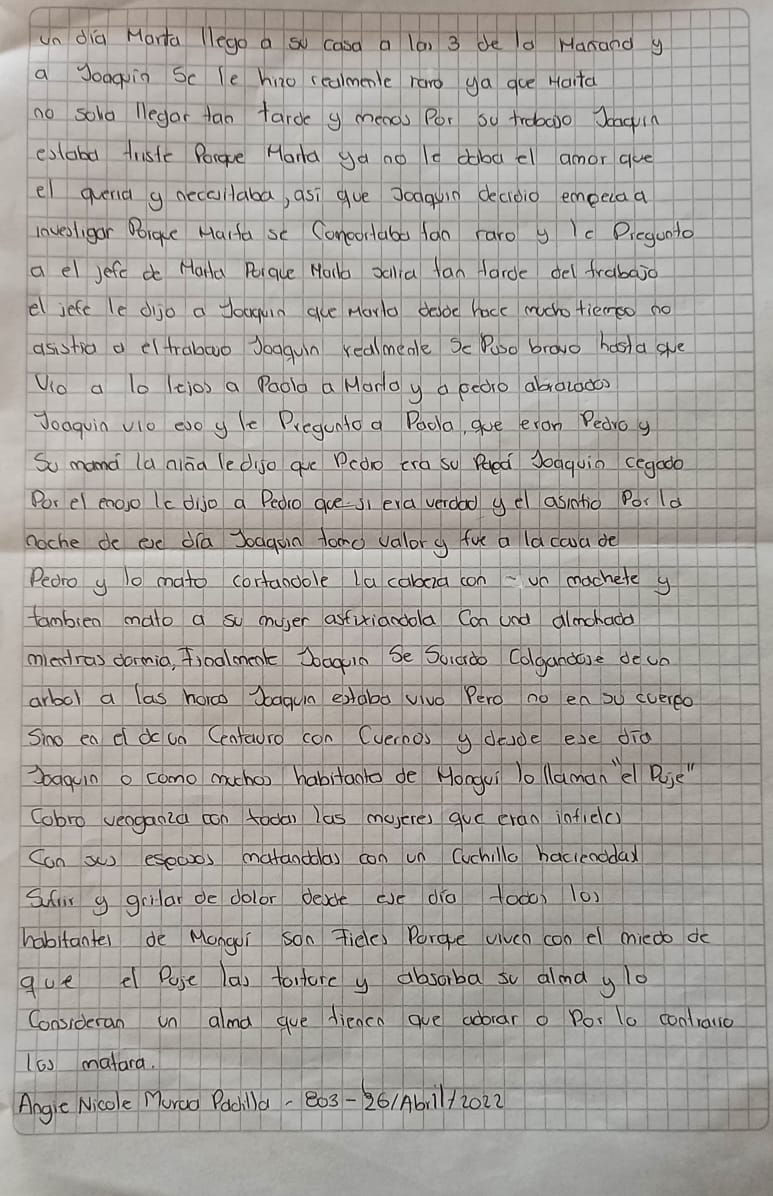 un día Marta llego a su casa a las 3 de la Manand y
a Joaquin Se le hizo realmente raro ya que Marta
no solia llegar tan tarde y menos Por su trabajo Joaquin
estaba triste Porque Marta ya no le daba el amor que
el queria y necesitaba, asi que Joaquin decidio empezar a
investigar Porque Marta se Comportaba tan raro y le Pregunto
a el jefe de Marta Porque Marta salia tan tarde del trabajo
el jefe le dijo a Joaquin que Marta desde hace mucho tiempo no
asistia a el trabajo Joaquin realmente Se Puso bravo hasta que
Vio a lo lejos a Paola a Marta y a pedro abrazados
Joaquin vio eso y le Pregunto a Paola, que eran Pedro y
Su mamá la niña le dijo que Pedro era su Papá Joaquin cegado
Por el enojo le dijo a Pedro que si era verdad y el asintio Por la
noche de ese día Joaquin tomo valor y fue a la casa de
Pedro y lo mato cortandole la cabeza con - un machete y
tambien mato a su mujer asfixiandola Con una almohada
mientras dormia, Finalmente Joaquin Se Suicido Colgandose de un
arbol a las horas Joaquin estaba vivo Pero no en su cuerpo
Sino en el de un Centauro con Cuernos y desde ese día
Joaquin o como muchos habitantes de Mongui lo llaman "el Puje"
Cobro venganza con todas las mujeres que eran infieles
Con sus esposos matandolas con un Cuchillo haciendolas
Sufrir y gritar de dolor desde ese día todos los
habitantes de Monguí son Fieles Porque viven con el miedo de
que el Puje las torture y absorba su alma y lo
Consideran un alma que tienen que adorar o Por lo contrario
los matara.
Angie Nicole Murcia Padilla - 803 - 26/Abril/2022